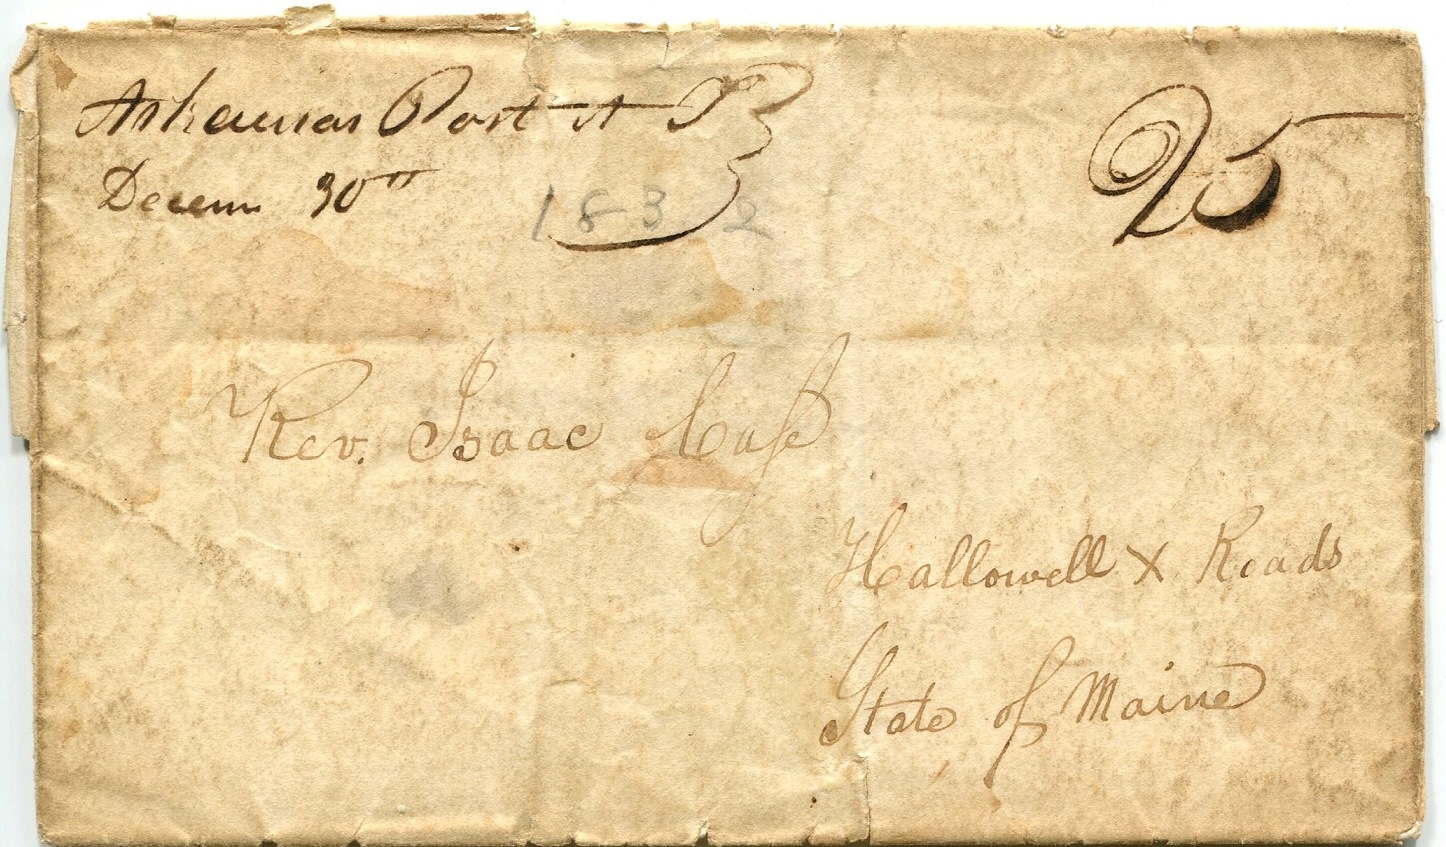 Arkansas Post A T
25
Decem 30"
1832
Rev. Isaac Caſe
Hallowell X Roads
State of Maine